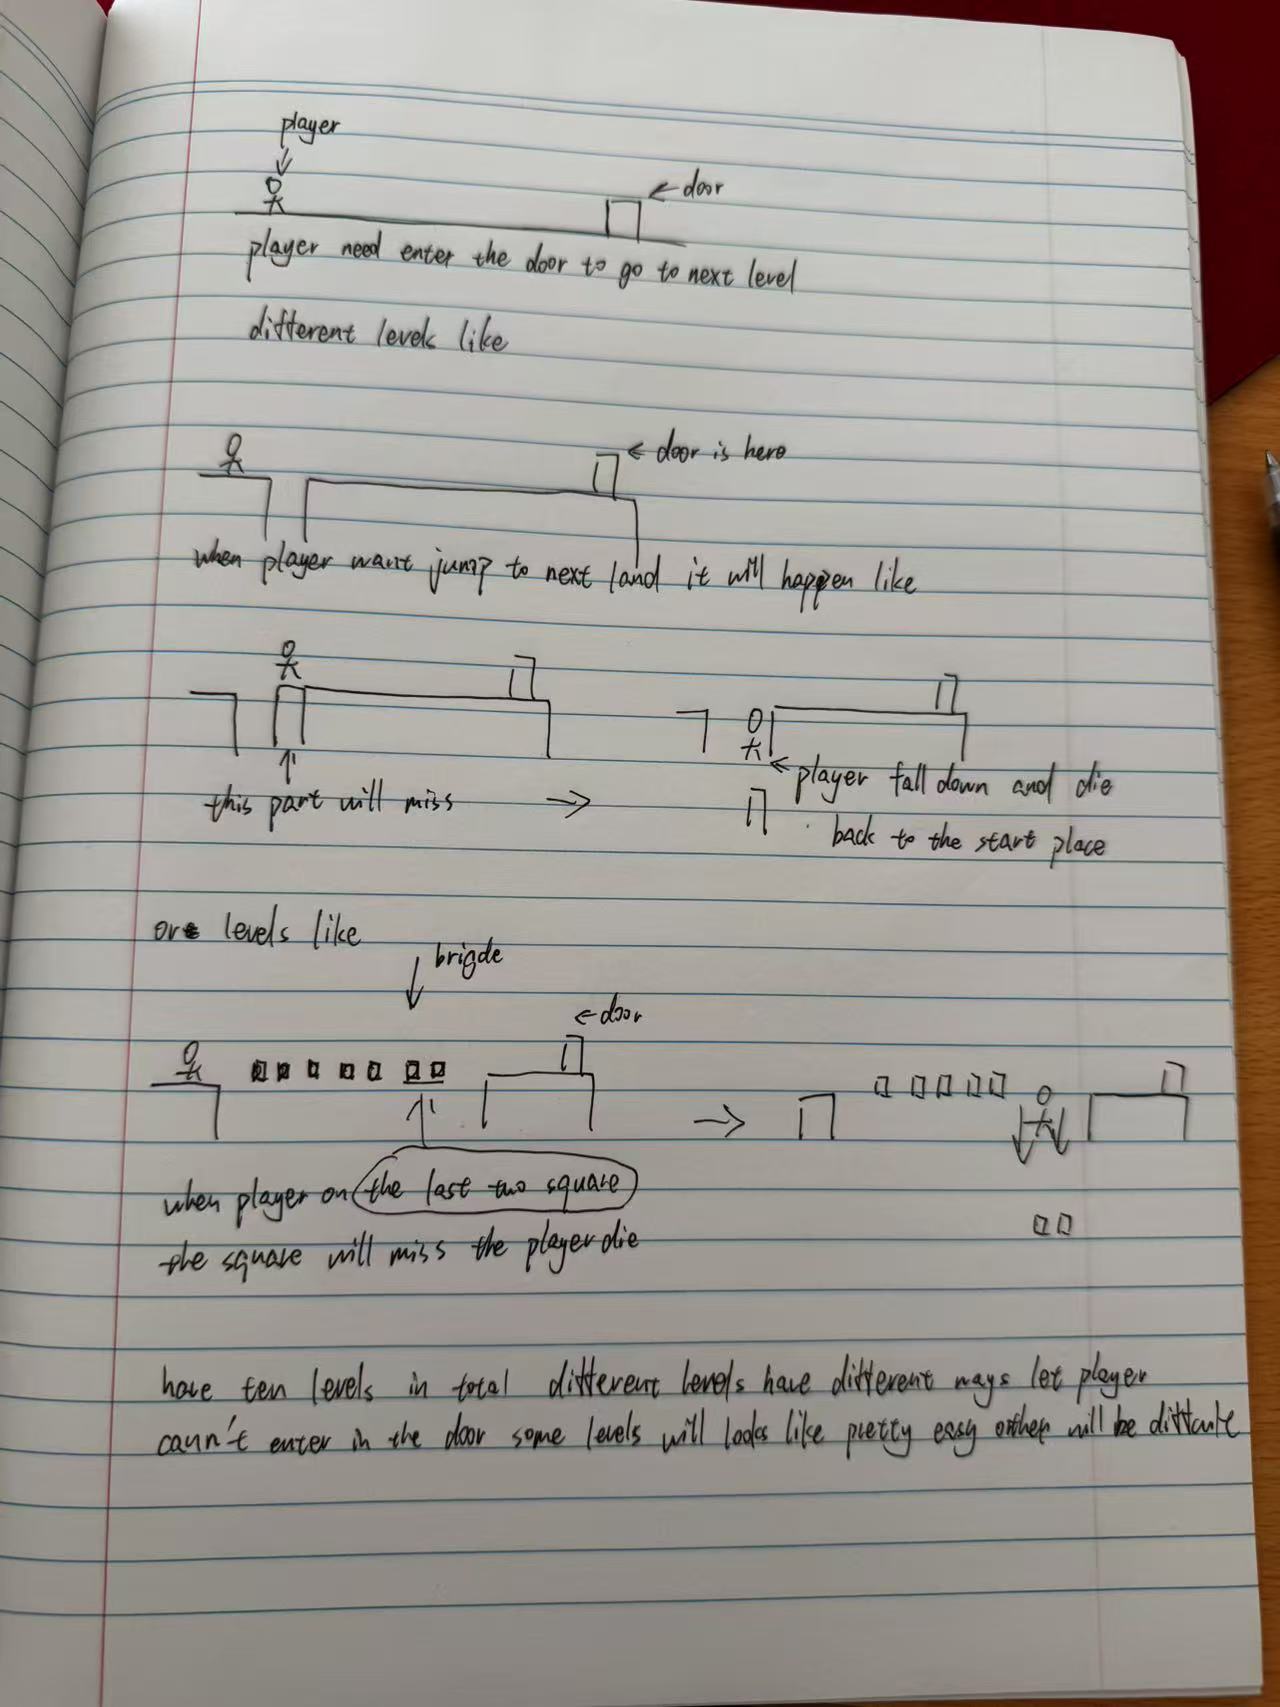 player
← door
player need enter the door to go to next level
different levels like
← door is here
when player want jump to next land it will happen like
this part will miss →
← player fall down and die
back to the start place
or levels like
brigde
← door
→
when player on the last two square
the square will miss the player die
have ten levels in total different levels have different ways let player
caun't enter in the door some levels will looks like pretty easy will be